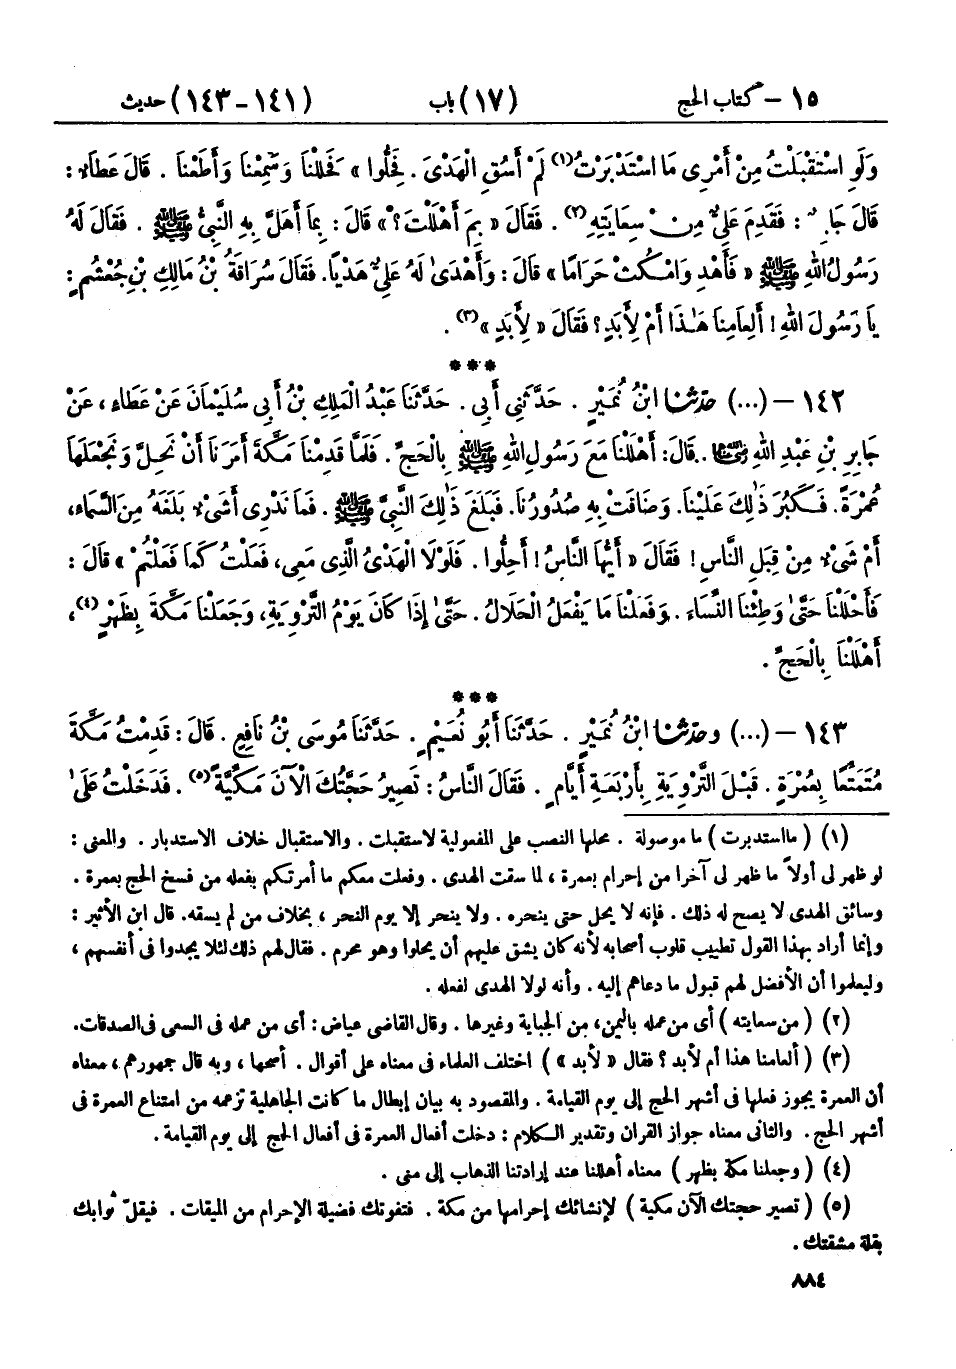 ١٥ – كتاب الحج (١٧) باب (١٤١ – ١٤٣) حديث
وَلَوِ اسْتَقْبَلْتُ مِنْ أَمْرِى مَا اسْتَدْبَرْتُ(١) لَمْ أَسُقِ الْهَدْىَ . فَحِلُّوا » فَحَلَلْنَا وَسَمِعْنَا وَأَطَعْنَا . قَالَ عَطَاءٌ :
قَالَ جَابِرٌ : فَقَدِمَ عَلِيٌّ مِنْ سِعَايَتِهِ(٢) . فَقَالَ « بِمَ أَهْلَلْتَ؟ » قَالَ : بِمَا أَهَلَّ بِهِ النَّبِيُّ ﷺ . فَقَالَ لَهُ
رَسُولُ اللهِ ﷺ « فَأَهْدِ وَامْكُثْ حَرَامًا » قَالَ : وَأَهْدَىٰ لَهُ عَلِيٌّ هَدْيًا. فَقَالَ سُرَاقَةُ بْنُ مَالِكِ بْنِ جُعْشُمٍ :
يَا رَسُولَ اللهِ! أَلِعَامِنَا هَٰذَا أَمْ لِأَبَدٍ؟ فَقَالَ « لِأَبَدٍ »(٣) .
***
١٤٢ – (...) حدّثنا ابْنُ نُمَيْرٍ . حَدَّثَنِى أَبِى . حَدَّثَنَا عَبْدُ الْمَلِكِ بْنُ أَبِى سُلَيْمَانَ عَنْ عَطَاءٍ ، عَنْ
جَابِرِ بْنِ عَبْدِ اللهِ رضي الله عنهما . قَالَ: أَهْلَلْنَا مَعَ رَسُولِ اللهِ ﷺ بِالْحَجِّ . فَلَمَّا قَدِمْنَا مَكَّةَ أَمَرَنَا أَنْ نَحِلَّ وَنَجْعَلَهَا
عُمْرَةً. فَكَبُرَ ذَٰلِكَ عَلَيْنَا. وَضَاقَتْ بِهِ صُدُورُنَا. فَبَلَغَ ذَٰلِكَ النَّبِيَّ ﷺ . فَمَا نَدْرِى أَشَىْءٌ بَلَغَهُ مِنَ السَّمَاءِ،
أَمْ شَىْءٌ مِنْ قِبَلِ النَّاسِ! فَقَالَ « أَيُّهَا النَّاسُ! أَحِلُّوا . فَلَوْلَا الْهَدْىُ الَّذِى مَعِى، فَعَلْتُ كَمَا فَعَلْتُمْ » قَالَ :
فَأَحْلَلْنَا حَتَّىٰ وَطِئْنَا النِّسَاءَ . وَفَعَلْنَا مَا يَفْعَلُ الْحَلَالُ . حَتَّىٰ إِذَا كَانَ يَوْمُ التَّرْوِيَةِ، وَجَعَلْنَا مَكَّةَ بِظَهْرٍ(٤)،
أَهْلَلْنَا بِالْحَجِّ .
***
١٤٣ – (...) وحدّثنا ابْنُ نُمَيْرٍ . حَدَّثَنَا أَبُو نُعَيْمٍ . حَدَّثَنَا مُوسَى بْنُ نَافِعٍ . قَالَ : قَدِمْتُ مَكَّةَ
مُتَمَتِّعًا بِعُمْرَةٍ . قَبْلَ التَّرْوِيَةِ بِأَرْبَعَةِ أَيَّامٍ . فَقَالَ النَّاسُ : تَصِيرُ حَجَّتُكَ الْآنَ مَكِّيَّةً(٥) . فَدَخَلْتُ عَلَىٰ
(١) ( ما استدبرت ) ما موصولة . محلها النصب على المفعولية لاستقبلت . والاستقبال خلاف الاستدبار . والمعنى :
لو ظهر لى أولاً ما ظهر لى آخرا من إحرام بعمرة ، لما سقت الهدى . وفعلت معكم ما أمرتكم بفعله من فسخ الحج بعمرة .
وسائق الهدى لا يصح له ذلك . فإنه لا يحل حتى ينحره . ولا ينحر إلا يوم النحر ، بخلاف من لم يسقه. قال ابن الأثير :
وإنما أراد بهذا القول تطييب قلوب أصحابه لأنه كان يشق عليهم أن يحلوا وهو محرم . فقال لهم ذلك لئلا يجدوا فى أنفسهم ،
وليعلموا أن الأفضل لهم قبول ما دعاهم إليه . وأنه لولا الهدى لفعله .
(٢) ( من سعايته ) أى من عمله باليمن، من الجباية وغيرها . وقال القاضى عياض : أى من عمله فى السعى فى الصدقات.
(٣) ( ألعامنا هذا أم لأبد ؟ فقال « لأبد » ) اختلف العلماء فى معناه على أقوال . أصحها ، وبه قال جمهورهم ، معناه
أن العمرة يجوز فعلها فى أشهر الحج إلى يوم القيامة . والمقصود به بيان إبطال ما كانت الجاهلية تزعمه من امتناع العمرة فى
أشهر الحج . والثانى معناه جواز القران وتقدير الكلام : دخلت أفعال العمرة فى أفعال الحج إلى يوم القيامة .
(٤) ( وجعلنا مكة بظهر ) معناه أهللنا عند إرادتنا الذهاب إلى منى .
(٥) ( تصير حجتك الآن مكية ) لإنشائك إحرامها من مكة . فتفوتك فضيلة الإحرام من الميقات . فيقلّ ثوابك
بقلة مشقتك .
٨٨٤